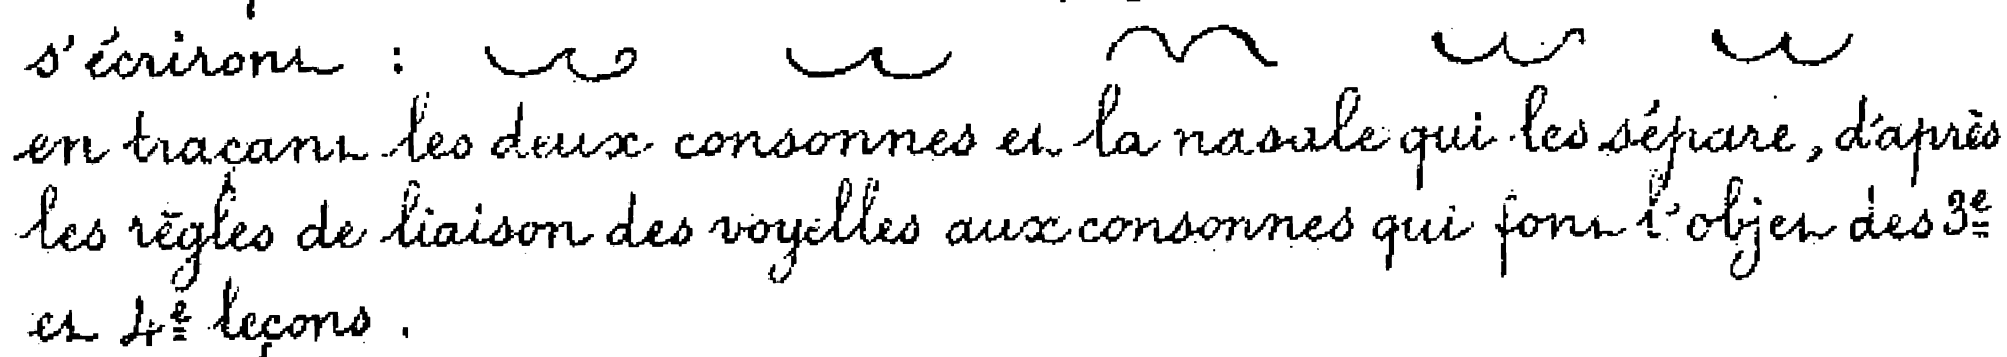 s'écriront :
en traçant les deux consonnes et la nasale qui les sépare, d'après
les règles de liaison des voyelles aux consonnes qui font l'objet des 3e
et 4e leçons.